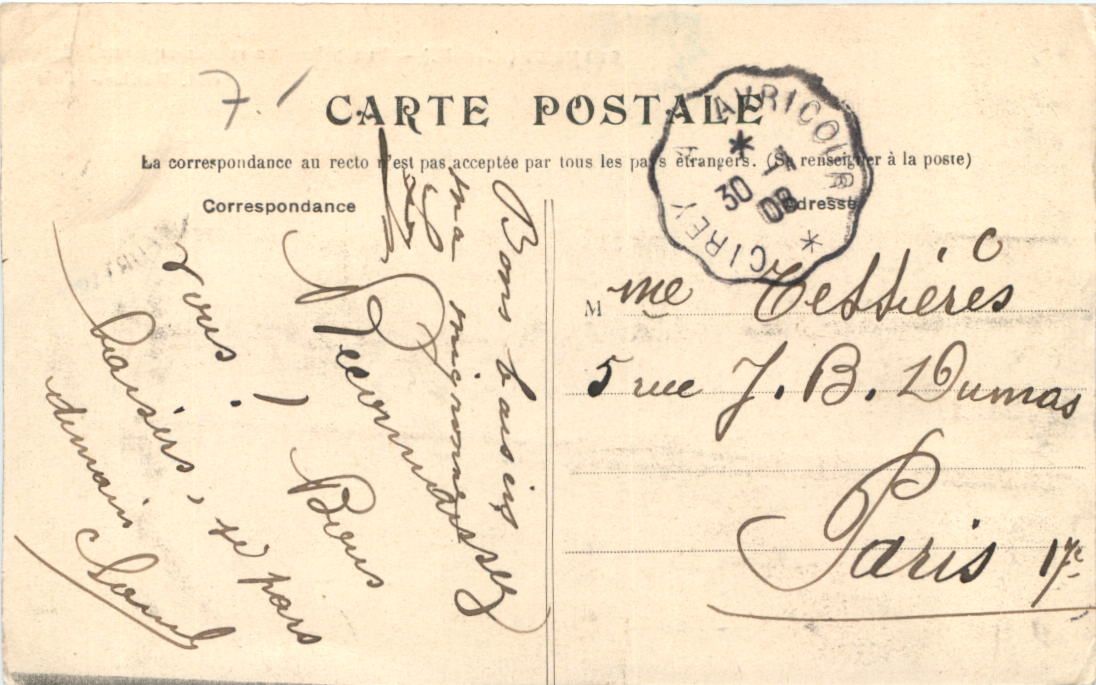 CARTE POSTALE
La correspondance au recto n'est pas acceptée par tous les pays étrangers. (Se renseigner à la poste)
Correspondance
Adresse
AVRICOURT
30 11
08
CIREY
Bons baisers
ma mignonne
Reconnaissez
vous ! Bons
baisers, je pars
demain
Mme Tessières
5 rue J. B. Dumas
Paris 17e